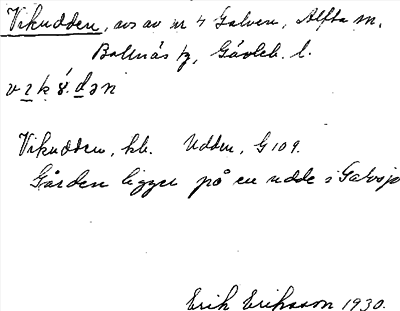 Vikudden, avs av nr 4 Galven, Alfta sn.
Bollnäs tg, Gävleb. l.
Vikudden, hb. Udden, G 109.
Gården ligger på en udde i Galvsjö
Erik Eriksson 1930.